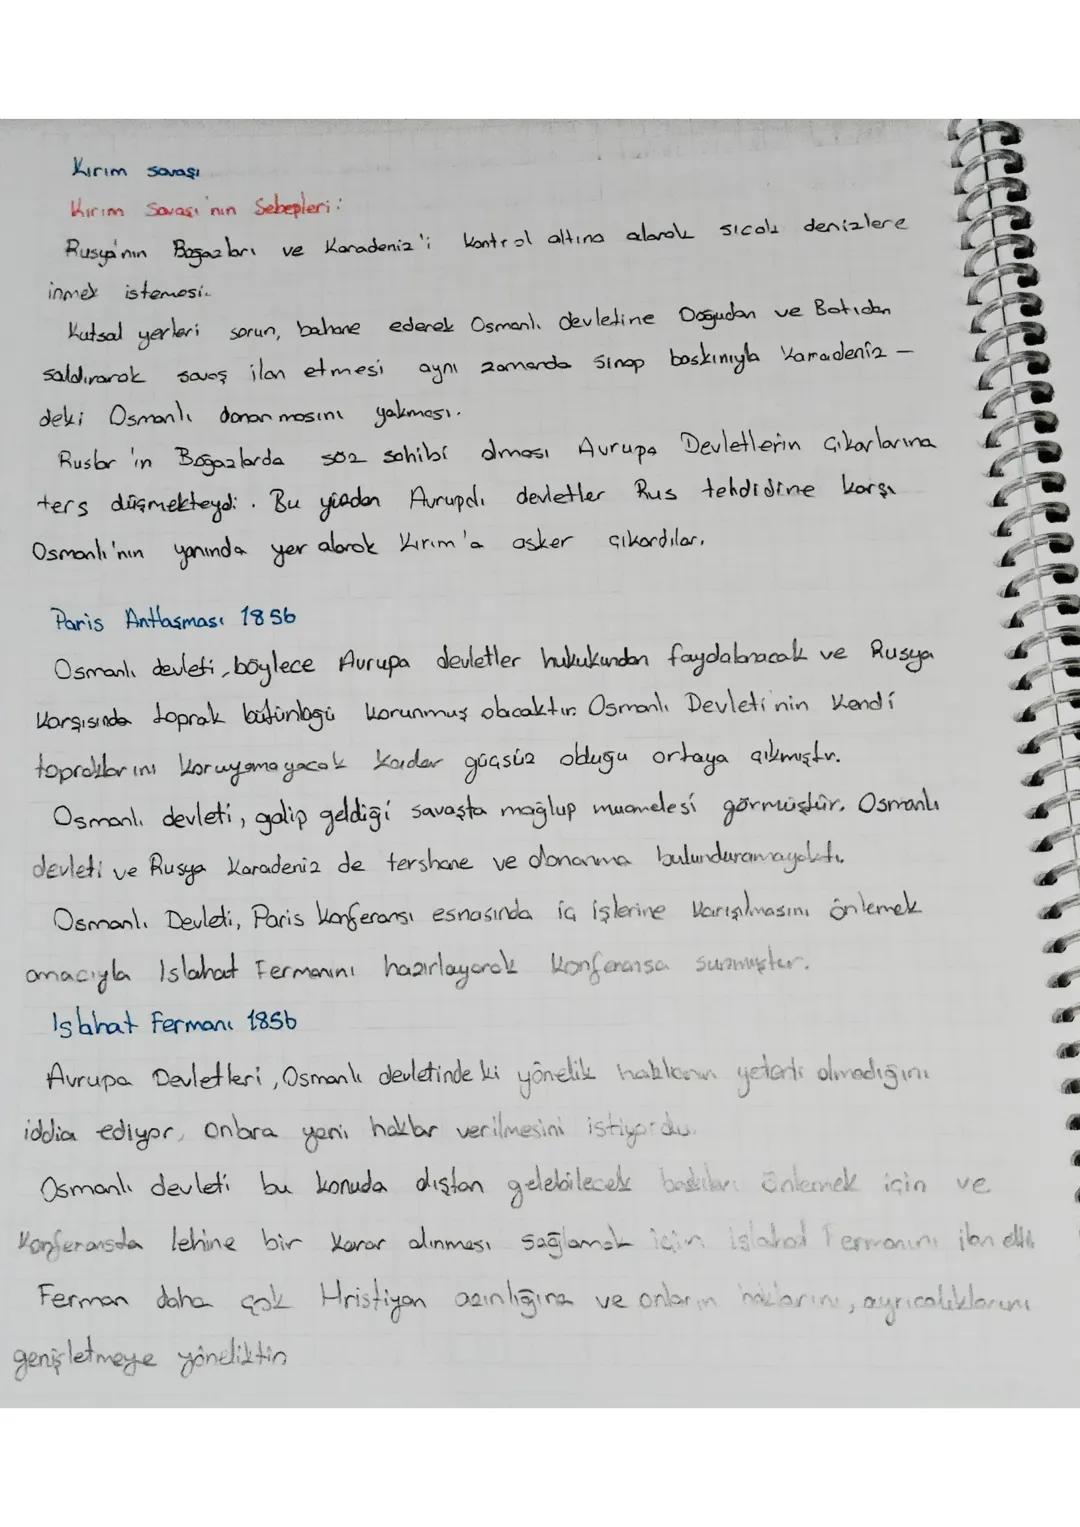 Kırım savaşı
Kırım Savaşı'nın Sebepleri:
Rusya'nın Boğazları ve Karadeniz'i kontrol altına alarak sıcak denizlere
inmek istemesi.
Kutsal yerleri sorun, bahane ederek Osmanlı devletine Doğudan ve Batıdan
saldırarak savaş ilan etmesi aynı zamanda Sinop baskınıyla Karadeniz-
deki Osmanlı donanmasını yakması.
Ruslar'ın Boğazlarda söz sahibi olması Avrupa Devletlerin Çıkarlarına
ters düşmekteydi. Bu yüzden Avrupalı devletler Rus tehdidine karşı
Osmanlı'nın yanında yer alarak Kırım'a asker çıkardılar.
Paris Antlaşması 1856
Osmanlı devleti, böylece Avrupa devletler hukukundan faydalanacak ve Rusya
karşısında toprak bütünlüğü korunmuş olacaktır. Osmanlı Devleti'nin kendi
topraklarını koruyamayacak kadar güçsüz olduğu ortaya çıkmıştır.
Osmanlı devleti, galip geldiği savaşta mağlup muamelesi görmüştür. Osmanlı
devleti ve Rusya Karadeniz de tershane ve donanma bulunduramayaktı.
Osmanlı Devleti, Paris konferansı esnasında iç işlerine karışılmasını önlemek
amacıyla Islahat Fermanını hazırlayarak konferansa sunmuştur.
Islahat Fermanı 1856
Avrupa Devletleri, Osmanlı devletinde ki yönelik hakların yeterli olmadığını
iddia ediyor, onlara yeni haklar verilmesini istiyordu.
Osmanlı devleti bu konuda dıştan gelebilecek baskıları önlemek için ve
Konferansta lehine bir karar alınması sağlamak için Islahat Fermanını ilan etti.
Ferman daha çok Hristiyan azınlığına ve onların haklarını, ayrıcalıklarını
genişletmeye yöneliktir.